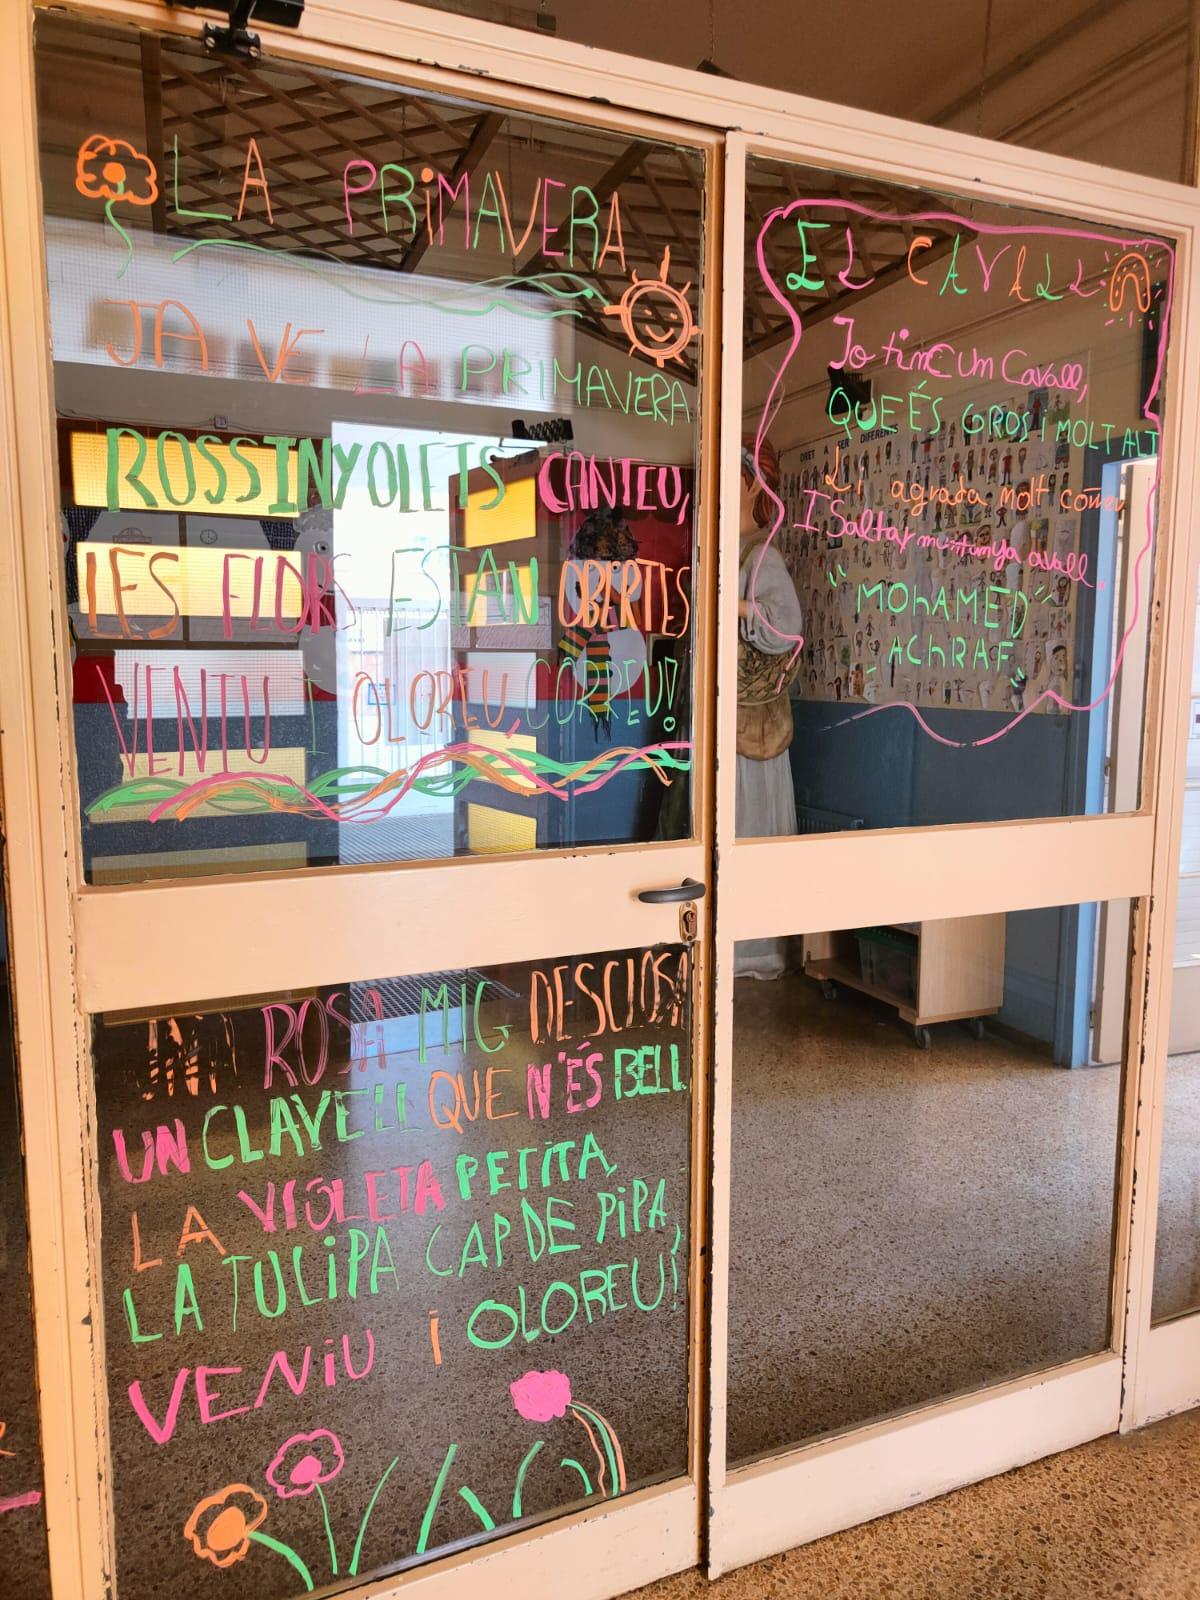 LA PRIMAVERA
JA VE LA PRIMAVERA
ROSSINYOLETS CANTEU,
LES FLORS ESTAN OBERTES
VENIU I OLOREU, CORREU!
ROSA MIG DESCLOSA
UN CLAVELL QUE N'ÉS BELL
LA VIOLETA PETITA,
LA TULIPA CAP DE PIPA,
VENIU I OLOREU!
EL CAVALL
Jo tinc un Cavall,
QUE ÉS GROS I MOLT ALT
Li agrada molt córrer
I Saltar muntanya avall.
"MOHAMED"
"ACHRAF"
DRET A SER DIFERENT